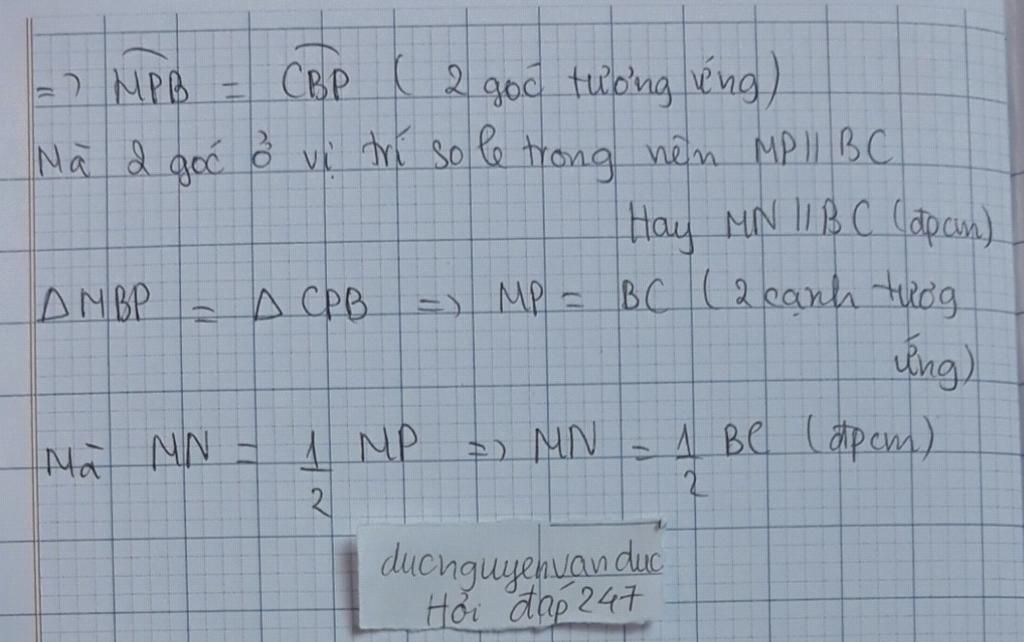 => MPB = CBP ( 2 góc tương ứng)
Mà 2 góc ở vị trí so le trong nên MP // BC
Hay MN // BC (đpcm)
Δ MBP = Δ CPB => MP = BC ( 2 cạnh tươg
ứng)
Mà MN = 1/2 MP => MN = 1/2 BC (đpcm)
ducnguyenvanduc
Hỏi đáp 247